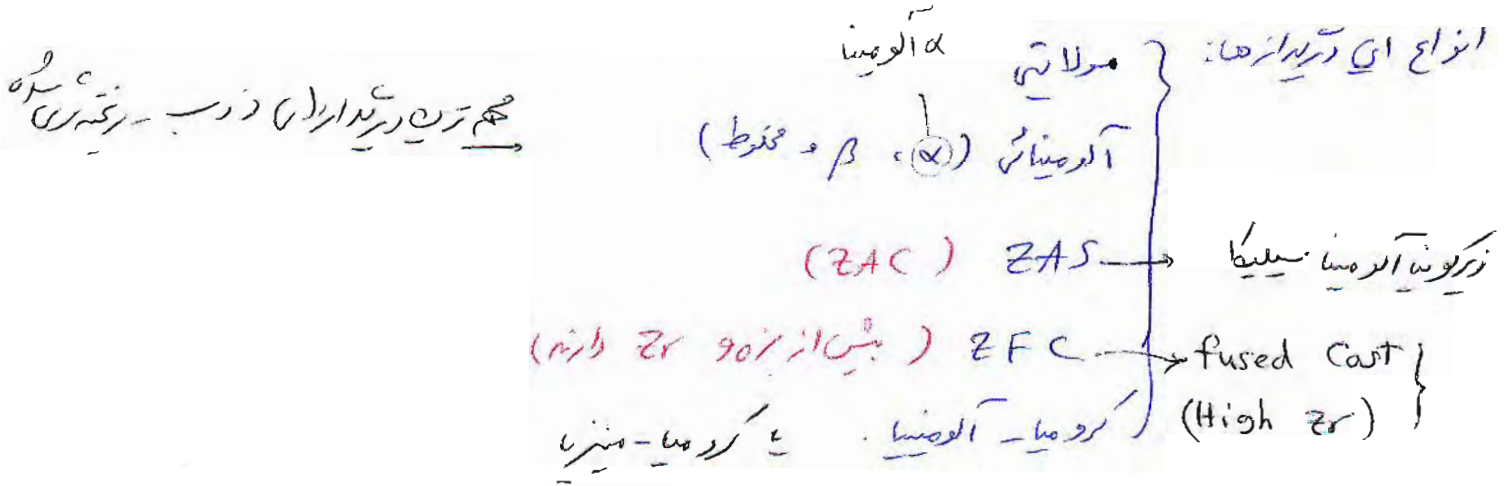 انواع این دیرگدازها:
مولایتی
α آلومینا
آلومینائی (α، β و مخلوط)
مهم ترین دیرگدازهای ذوب - ریخته گری شده
ZAS (ZAC) → زیرکونیا آلومینا سیلیکا
ZFC (بیش از 90% Zr دارند) → fused Cast
(High Zr)
کرومیا - آلومینا یا کرومیا - منیزیا